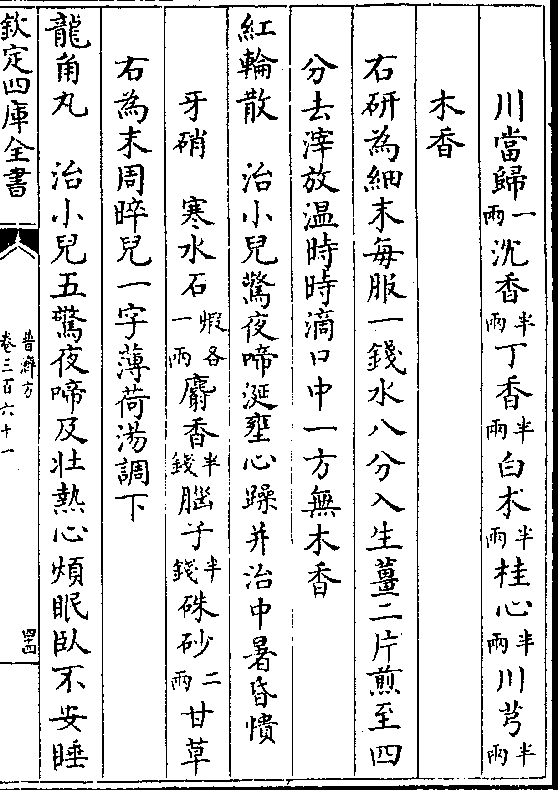 川當歸一兩沈香半兩丁香半兩白术半兩桂心半兩川芎半兩
木香
右研為細末每服一錢水八分入生薑二片煎至四
分去滓放温時時滴口中一方無木香
紅輪散　治小兒驚夜啼涎壅心躁并治中暑昏憒
牙硝　寒水石煆各一兩麝香半錢腦子半錢硃砂二兩甘草
右為末周晬兒一字薄荷湯調下
龍角丸　治小兒五驚夜啼及壯熱心煩眠臥不安睡
欽定四庫全書
普濟方
卷三百六十一